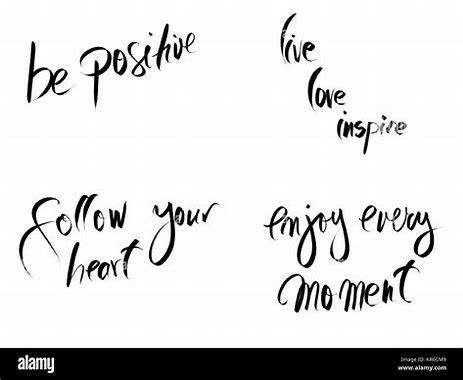 be positive
live
love
inspire
follow your
heart
enjoy every
moment
alamy
Image ID: KR6CM9
www.alamy.com